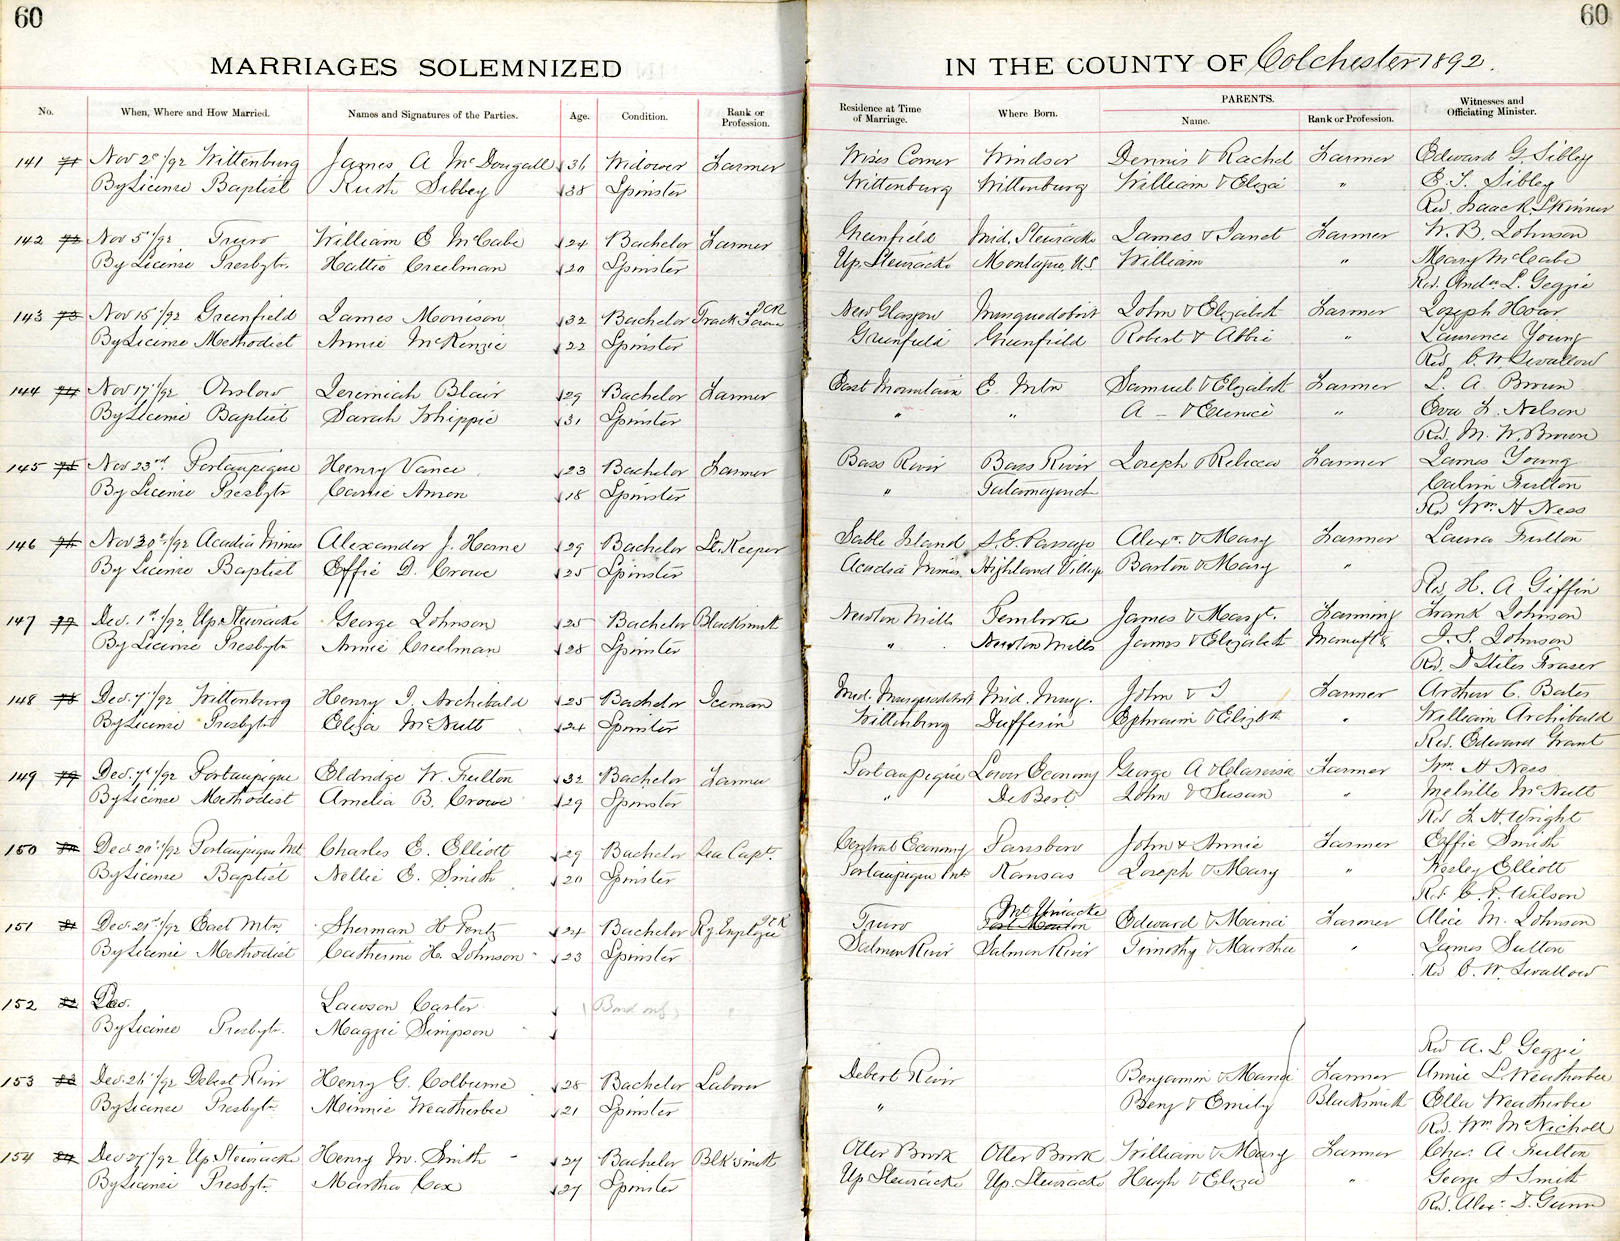 60
60
MARRIAGES SOLEMNIZED
IN THE COUNTY OF Colchester 1892.
No. When, Where and How Married. Names and Signatures of the Parties. Age. Condition. Rank or Profession. Residence at Time of Marriage. Where Born. PARENTS. Name. Rank or Profession. Witnesses and Officiating Minister.
141 71 Nov 2 /92 Wittenburg James A McDougall 36 Widower Farmer Wises Corner Windsor Dennis & Rachel Farmer Edward G. Sibley
By License Baptist Ruth Sibley 38 Spinster Wittenburg Wittenburg William & Eliza " E. T. Sibley
Rev. Isaac R. Skinner
142 72 Nov 5 /92 Truro William E McCabe 24 Bachelor Farmer Greenfield Mid. Stewiacke James & Janet Farmer W. B. Johnson
By License Presbytn. Hattie Creelman 20 Spinster Up. Stewiacke Montague, U.S William " Mary McCabe
Rev. Andw L. Geggie
143 73 Nov 15 /92 Greenfield James Morrison 32 Bachelor ICR Track Foreman New Glasgow Musquodoboit John & Elizabeth Farmer Joseph Hoar
By License Methodist Annie McKenzie 22 Spinster Greenfield Greenfield Robert & Abbie " Laurence Young
Rev C. W. Swallow
144 74 Nov 17 /92 Onslow Jeremiah Blair 29 Bachelor Farmer East Mountain E. Mtn Samuel & Elizabeth Farmer L. A. Brown
By License Baptist Sarah Whippie 31 Spinster " " A - & Eunice " Eva L. Nelson
Rev. M. W. Brown
145 75 Nov 23rd. Portaupique Henry Vance 23 Bachelor Farmer Bass River Bass River Joseph & Rebecca Farmer James Young
By License Presbytn Carrie Amon 18 Spinster " Tatamagouch Calvin Fulton
Rev Wm. H Ness
146 76 Nov 30 /92 Acadia Mines Alexander J. Horne 29 Bachelor Lt. Keeper Sable Island S. E. Passage Alexr. & Mary Farmer Laura Fulton
By License Baptist Effie D. Crowe 25 Spinster Acadia Mines Highland Village Barton & Mary "
Rev. H. A. Giffin
147 77 Dec. 1st/92 Up Stewiacke George Johnson 25 Bachelor Blacksmith Newton Mills Pembroke James & Margt. Farming Frank Johnson
By License Presbytn Annie Creelman 28 Spinster " Newton Mills James & Elizabeth J. S. Johnson
Rev. D Stiles Fraser
148 78 Dec. 7 /92 Wittenburg Henry I. Archibald 25 Bachelor Iceman Mid. Musquodoboit Mid. Musq. John & I Farmer Arthur C. Bates
By License Presbytn Eliza McNutt 24 Spinster Wittenburg Dufferin Ephraim & Elizbth " William Archibald
Rev. Edward Grant
149 79 Dec. 7 /92 Portaupique Eldridge W. Fulton 32 Bachelor Farmer Portaupique Lower Economy George A & Clarissa Farmer Wm. H Ness
By License Methodist Amelia B. Crowe 29 Spinster " DeBert John & Susan " Melville McNutt
Rev J. H. Wright
150 80 Dec 20 /92 Portaupique Mt Charles E. Elliott 29 Bachelor Sea Capt. Central Economy Parrsboro John & Annie Farmer Effie Smith
By License Baptist Nellie E. Smith 20 Spinster Portaupique Mt Kansas Joseph & Mary " Wesley Elliott
Rev. C. P. Wilson
151 81 Dec. 21 /92 East Mtn Sherman H Pentz 24 Bachelor ICR Ry. Employee Truro Mt Uniacke Edward & Maria Farmer Alice M. Johnson
By License Methodist Catherine H. Johnson 23 Spinster Salmon River Salmon River Timothy & Martha " James Sutton
Rev C. W. Swallow
152 82 Dec. Lawson Carter (Bond only)
By License Presbytn. Maggie Simpson
Rev A. L Geggie
153 83 Dec. 26 /92 Debert River Henry G. Colburne 28 Bachelor Laborer Debert River Benjamin & Maria Farmer Annie L Weatherbee
By License Presbytn Minnie Weatherbee 21 Spinster " Benj & Emily Blacksmith Ella Weatherbee
Rev. Wm McNicholl
154 84 Dec 27 /92 Up Stewiacke Henry M. Smith 27 Bachelor Blksmith Otter Brook Otter Brook William & Mary Farmer Chas. A Fulton
By License Presbytn Martha Cox 27 Spinster Up Stewiacke Up. Stewiacke Hugh & Eliza " George S Smith
Rev. Alexr. F. Gunn